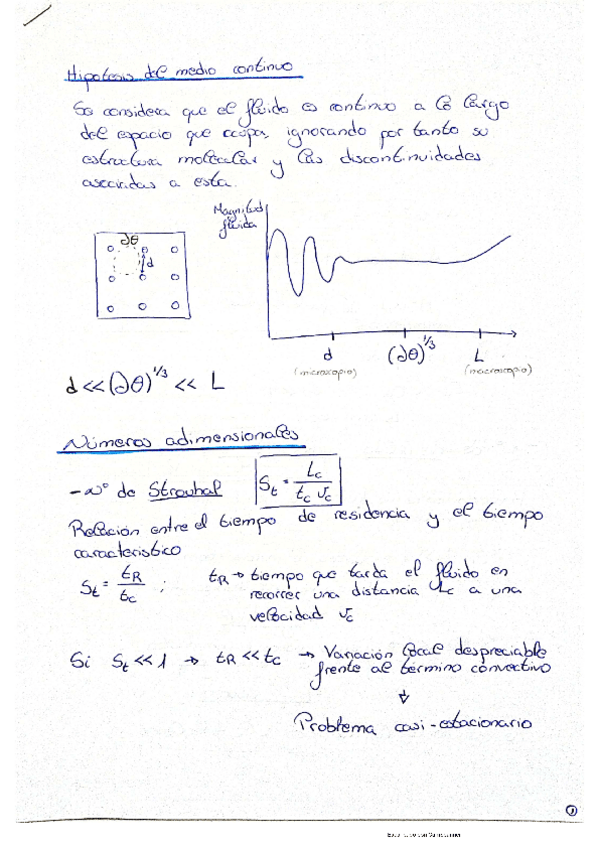 Hipotesis del medio continuo
Se considera que el fluido es continuo a lo largo
del espacio que ocupa, ignorando por tanto su
estructura molecular y las discontinuidades
asociadas a esta.
Magnitud
fluida
∂θ
d
d
(microscopio)
(∂θ)^1/3
L
(macroscopio)
d << (∂θ)^1/3 << L
Números adimensionales
- Nº de Strouhal
St = Lc / tc vc
Relación entre el tiempo de residencia y el tiempo
caracteristico
St = tR / tc ; tR → tiempo que tarda el fluido en
recorrer una distancia Lc a una
velocidad vc
Si St << 1 → tR << tc → Variación local despreciable
frente al termino convectivo
↓
Problema casi-estacionario
1